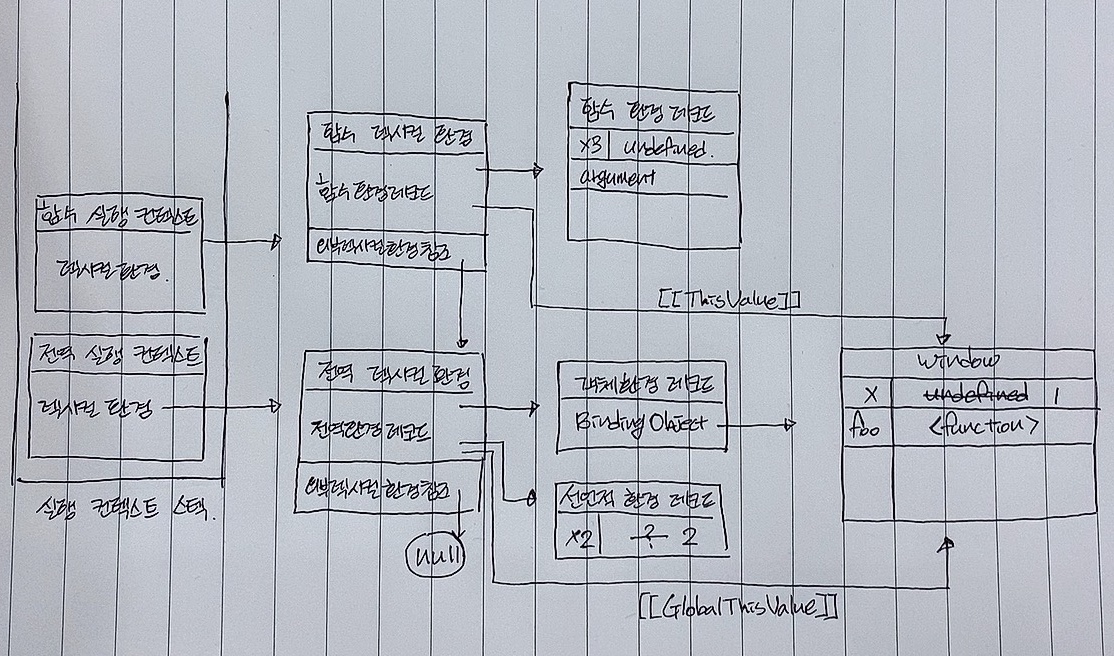 함수 실행 컨텍스트
렉시컬 환경.
전역 실행 컨텍스트
렉시컬 환경
실행 컨텍스트 스택.
함수 렉시컬 환경
함수환경레코드
외부렉시컬환경참조
전역 렉시컬 환경
전역환경레코드
외부렉시컬환경참조
null
함수 환경 레코드
x3 undefined.
argument
[[ThisValue]]
객체환경 레코드
Binding Object
선언적 환경 레코드
x2 ? 2
[[GlobalThisValue]]
window
x undefined 1
foo <function>